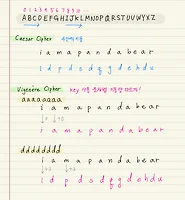 0 1 2 3 4 5 6 7 8 9 10
ABCDEFGHIJKLMNOPQRSTUVWXYZ
Caesar Cipher
i a m a p a n d a b e a r
l d p d s d q g d e h d u
Vigenère Cipher key
aaaaaaaa
i a m a p a n d a b e a r
+0 +0
i a m a p a n d a b e a r
dddddddd
i a m a p a n d a b e a r
+3 +3
l d p d s d q g d e h d u